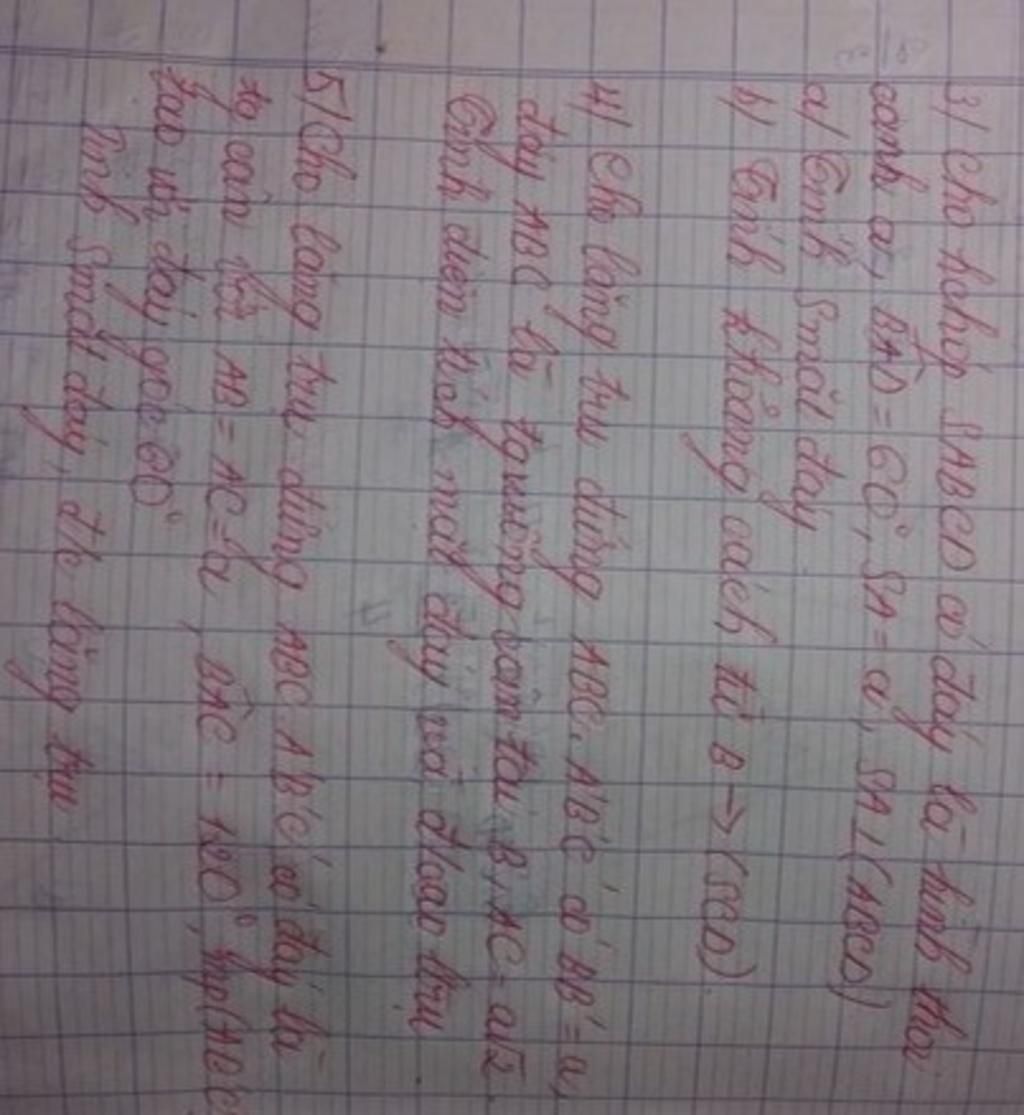 3/ Cho hchóp SABCD có đáy là hình thoi
cạnh a, BAD = 60°, SA = a, SA⊥(ABCD)
a/ Tính Smặt đáy
b/ Tính khoảng cách từ B → (SCD).
4/ Cho lăng trụ đứng ABC.A'B'C' có BB' = a,
đáy ABC là tg vuông cân tại B, AC = a√2
Tính diện tích mặt đáy và đcao trụ
5/ Cho lăng trụ đứng ABC.A'B'C' có đáy là
tg cân AB = AC = a, BAC = 120°, mp(AB'C'
tạo với đáy góc 60°
Tính Smặt đáy, đc lăng trụ